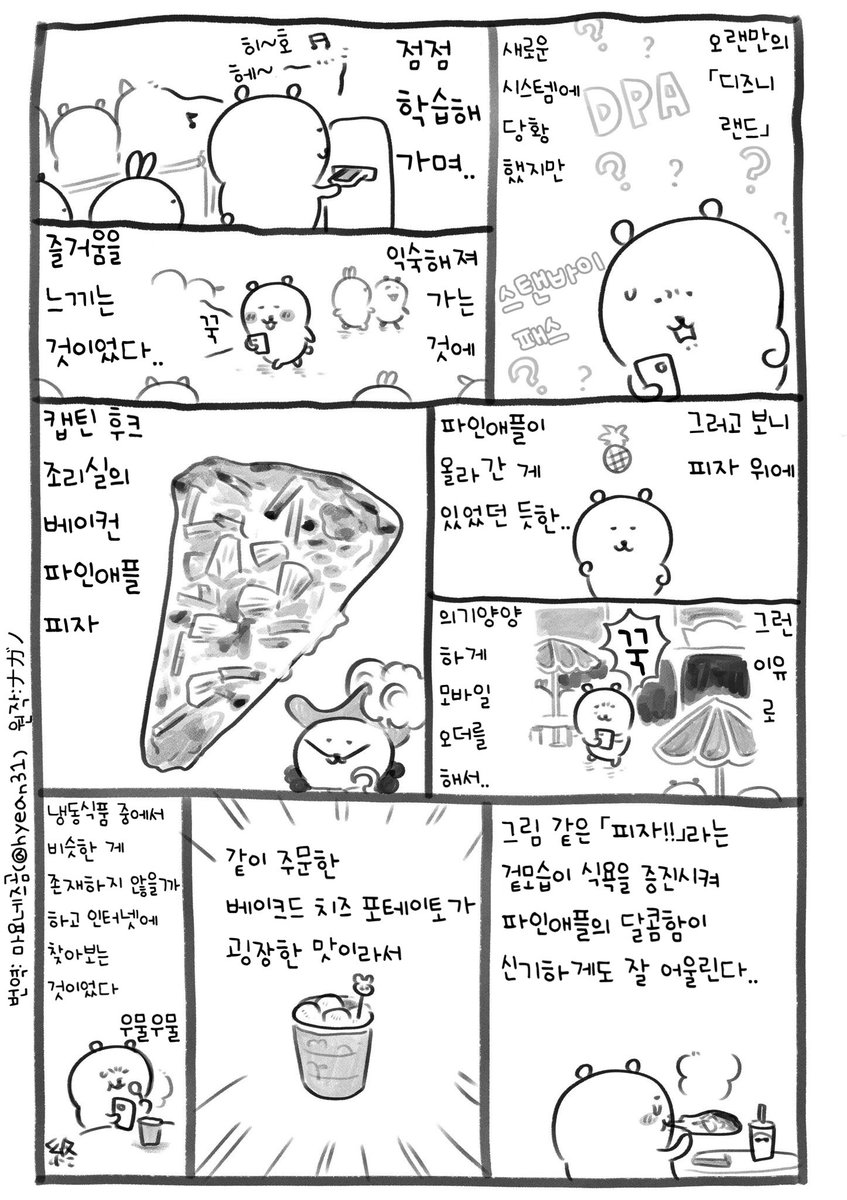 오랜만의
「디즈니
랜드」
새로운
시스템에
당황
했지만
DPA
스탠바이
패스
점점
학습해
가며..
히~호 ♬
헤~
익숙해져
가는
것에
즐거움을
느끼는
것이었다..
꾹
그러고 보니
피자 위에
파인애플이
올라간 게
있었던 듯한..
그런
이유
로
꾹
의기양양
하게
모바일
오더를
해서..
캡틴 후크
조리실의
베이컨
파인애플
피자
그림 같은 「피자!!」라는
겉모습이 식욕을 증진시켜
파인애플의 달콤함이
신기하게도 잘 어울린다..
같이 주문한
베이크드 치즈 포테이토가
굉장한 맛이라서
냉동식품 중에서
비슷한 게
존재하지 않을까
하고 인터넷에
찾아보는
것이었다
우물우물
終
번역: 마요네즈곰(@hyean31) 원작:ナガノ